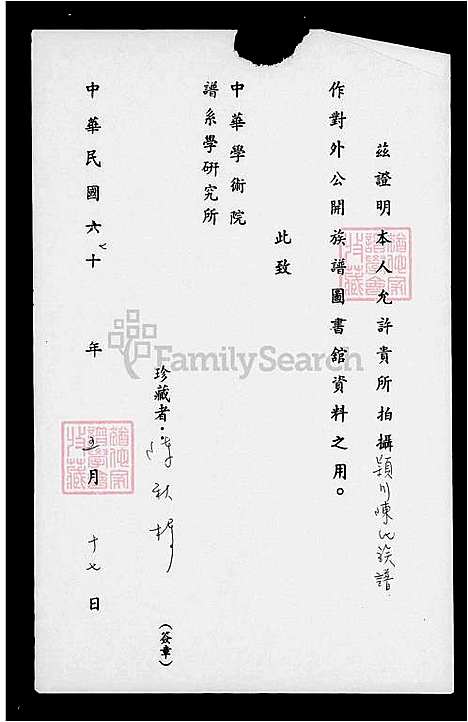 茲證明本人允許貴所拍攝穎川陳氏族譜
作對外公開族譜圖書館資料之用。
此致
中華學術院
譜系學研究所
珍藏者·陳秋梓
(簽章)
中華民國六十七年五月十七日
FamilySearch